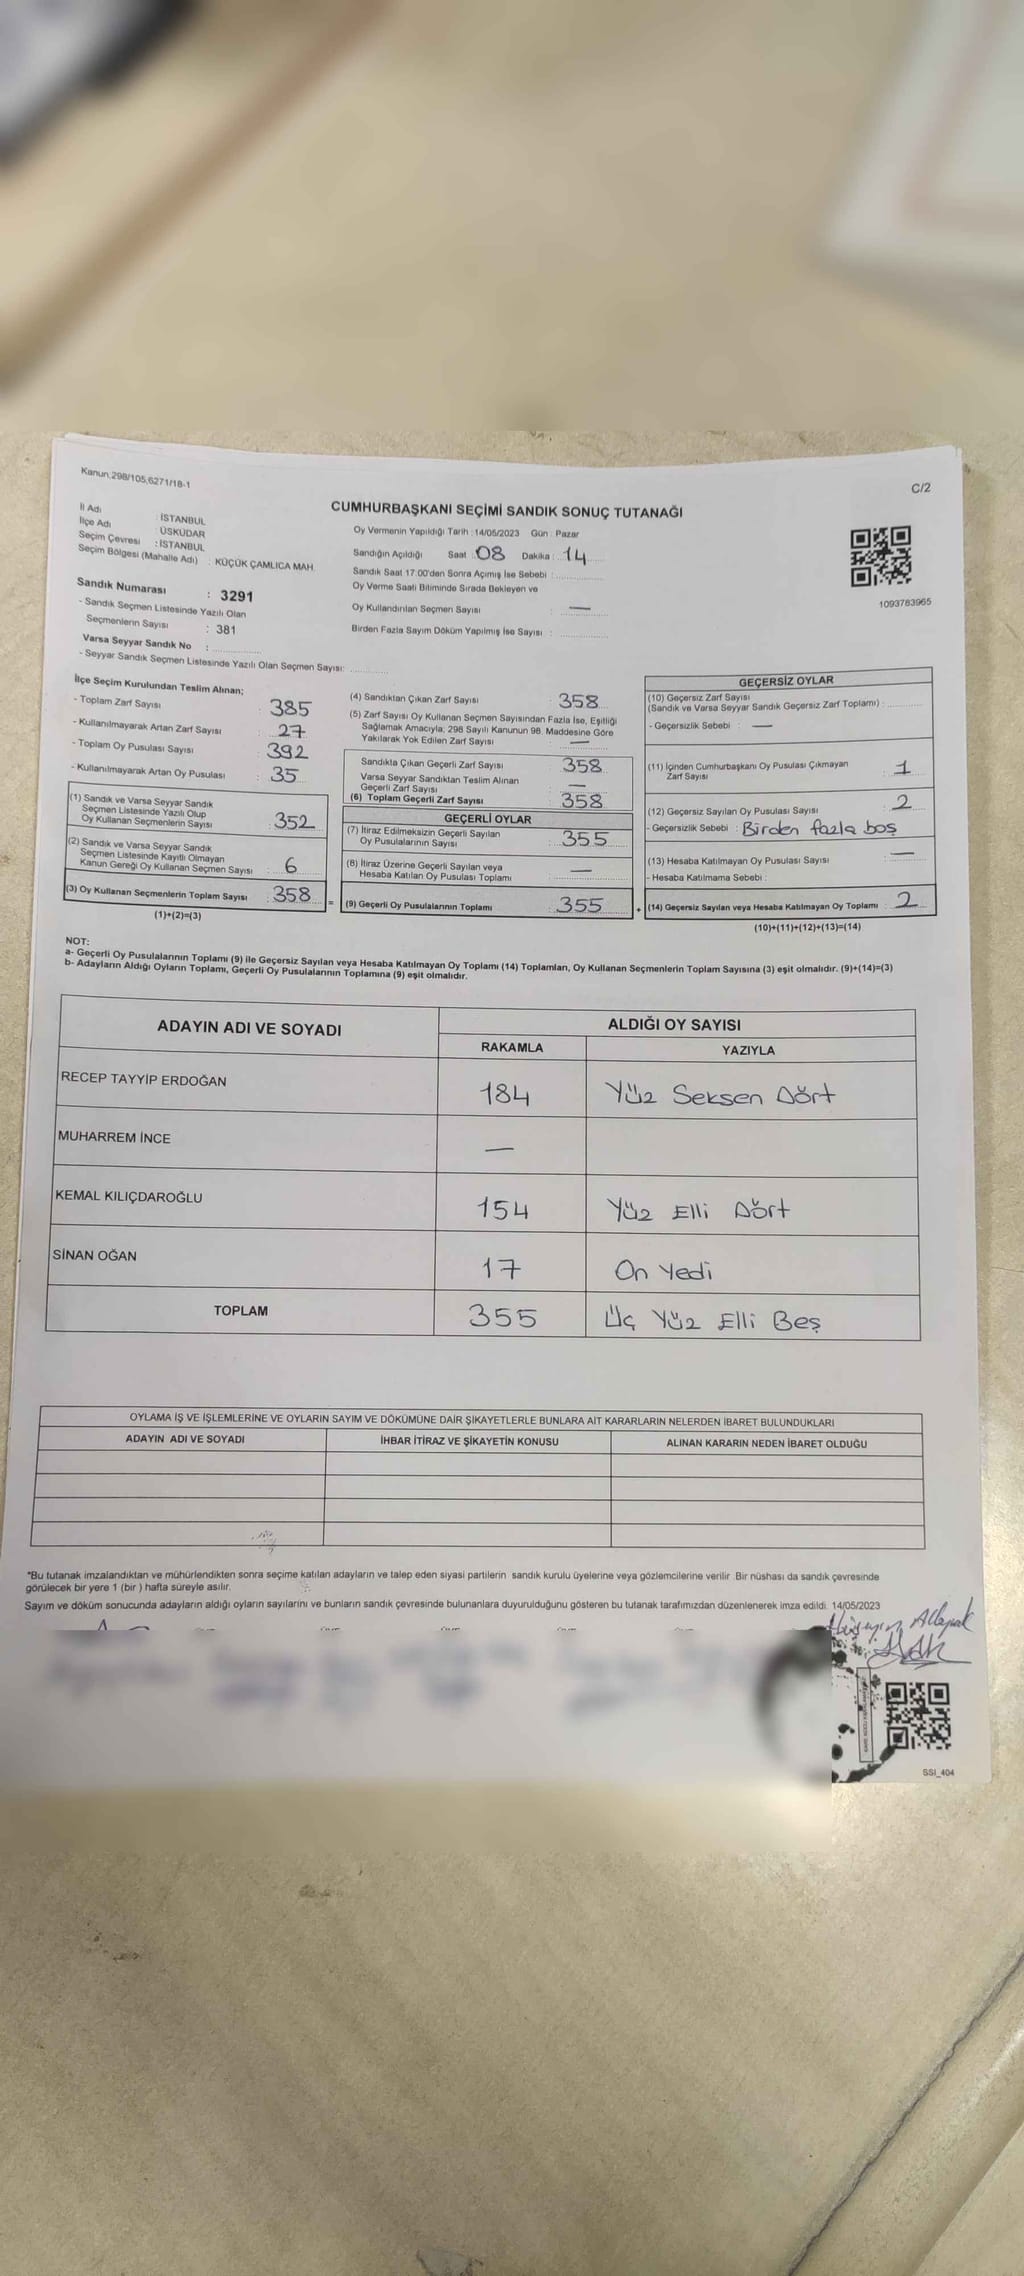 Kanun:298/105,6271/18-1
C/2
CUMHURBAŞKANI SEÇİMİ SANDIK SONUÇ TUTANAĞI
İl Adı : İSTANBUL
İlçe Adı : ÜSKÜDAR
Seçim Çevresi : İSTANBUL
Seçim Bölgesi (Mahalle Adı) : KÜÇÜK ÇAMLICA MAH.
Sandık Numarası : 3291
- Sandık Seçmen Listesinde Yazılı Olan
Seçmenlerin Sayısı : 381
Varsa Seyyar Sandık No :
- Seyyar Sandık Seçmen Listesinde Yazılı Olan Seçmen Sayısı:
Oy Vermenin Yapıldığı Tarih : 14/05/2023 Gün : Pazar
Sandığın Açıldığı Saat : 08 Dakika : 14
Sandık Saat 17:00'den Sonra Açımış İse Sebebi :
Oy Verme Saati Bitiminde Sırada Bekleyen ve
Oy Kullandırılan Seçmen Sayısı : —
Birden Fazla Sayım Döküm Yapılmış İse Sayısı :
1093763965
İlçe Seçim Kurulundan Teslim Alınan;
- Toplam Zarf Sayısı : 385
- Kullanılmayarak Artan Zarf Sayısı : 27
- Toplam Oy Pusulası Sayısı : 392
- Kullanılmayarak Artan Oy Pusulası : 35
(1) Sandık ve Varsa Seyyar Sandık
Seçmen Listesinde Yazılı Olup
Oy Kullanan Seçmenlerin Sayısı : 352
(2) Sandık ve Varsa Seyyar Sandık
Seçmen Listesinde Kayıtlı Olmayan
Kanun Gereği Oy Kullanan Seçmen Sayısı : 6
(3) Oy Kullanan Seçmenlerin Toplam Sayısı : 358
(1)+(2)=(3)
=
(4) Sandıktan Çıkan Zarf Sayısı : 358
(5) Zarf Sayısı Oy Kullanan Seçmen Sayısından Fazla İse, Eşitliği
Sağlamak Amacıyla; 298 Sayılı Kanunun 98. Maddesine Göre
Yakılarak Yok Edilen Zarf Sayısı : —
Sandıkta Çıkan Geçerli Zarf Sayısı : 358
Varsa Seyyar Sandıktan Teslim Alınan
Geçerli Zarf Sayısı : —
(6) Toplam Geçerli Zarf Sayısı : 358
GEÇERLİ OYLAR
(7) İtiraz Edilmeksizin Geçerli Sayılan
Oy Pusulalarının Sayısı : 355
(8) İtiraz Üzerine Geçerli Sayılan veya
Hesaba Katılan Oy Pusulası Toplamı : —
(9) Geçerli Oy Pusulalarının Toplamı : 355
+
GEÇERSİZ OYLAR
(10) Geçersiz Zarf Sayısı
(Sandık ve Varsa Seyyar Sandık Geçersiz Zarf Toplamı) :
- Geçersizlik Sebebi : —
(11) İçinden Cumhurbaşkanı Oy Pusulası Çıkmayan
Zarf Sayısı : 1
(12) Geçersiz Sayılan Oy Pusulası Sayısı : 2
- Geçersizlik Sebebi : Birden fazla boş
(13) Hesaba Katılmayan Oy Pusulası Sayısı : —
- Hesaba Katılmama Sebebi :
(14) Geçersiz Sayılan veya Hesaba Katılmayan Oy Toplamı : 2
(10)+(11)+(12)+(13)=(14)
NOT:
a- Geçerli Oy Pusulalarının Toplamı (9) ile Geçersiz Sayılan veya Hesaba Katılmayan Oy Toplamı (14) Toplamları, Oy Kullanan Seçmenlerin Toplam Sayısına (3) eşit olmalıdır. (9)+(14)=(3)
b- Adayların Aldığı Oyların Toplamı, Geçerli Oy Pusulalarının Toplamına (9) eşit olmalıdır.
ADAYIN ADI VE SOYADI
ALDIĞI OY SAYISI
RAKAMLA YAZIYLA
RECEP TAYYİP ERDOĞAN 184 Yüz Seksen Dört
MUHARREM İNCE —
KEMAL KILIÇDAROĞLU 154 Yüz Elli Dört
SİNAN OĞAN 17 On Yedi
TOPLAM 355 Üç Yüz Elli Beş
OYLAMA İŞ VE İŞLEMLERİNE VE OYLARIN SAYIM VE DÖKÜMÜNE DAİR ŞİKAYETLERLE BUNLARA AİT KARARLARIN NELERDEN İBARET BULUNDUKLARI
ADAYIN ADI VE SOYADI İHBAR İTİRAZ VE ŞİKAYETİN KONUSU ALINAN KARARIN NEDEN İBARET OLDUĞU
*Bu tutanak imzalandıktan ve mühürlendikten sonra seçime katılan adayların ve talep eden siyasi partilerin sandık kurulu üyelerine veya gözlemcilerine verilir .Bir nüshası da sandık çevresinde
görülecek bir yere 1 (bir ) hafta süreyle asılır.
Sayım ve döküm sonucunda adayların aldığı oyların sayılarını ve bunların sandık çevresinde bulunanlara duyurulduğunu gösteren bu tutanak tarafımızdan düzenlenerek imza edildi. 14/05/2023
SSI_404